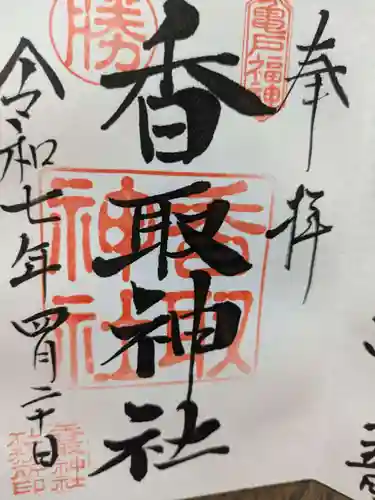 奉拝
亀戸福神
香取神社
勝
香取神社
令和七年四月二十日